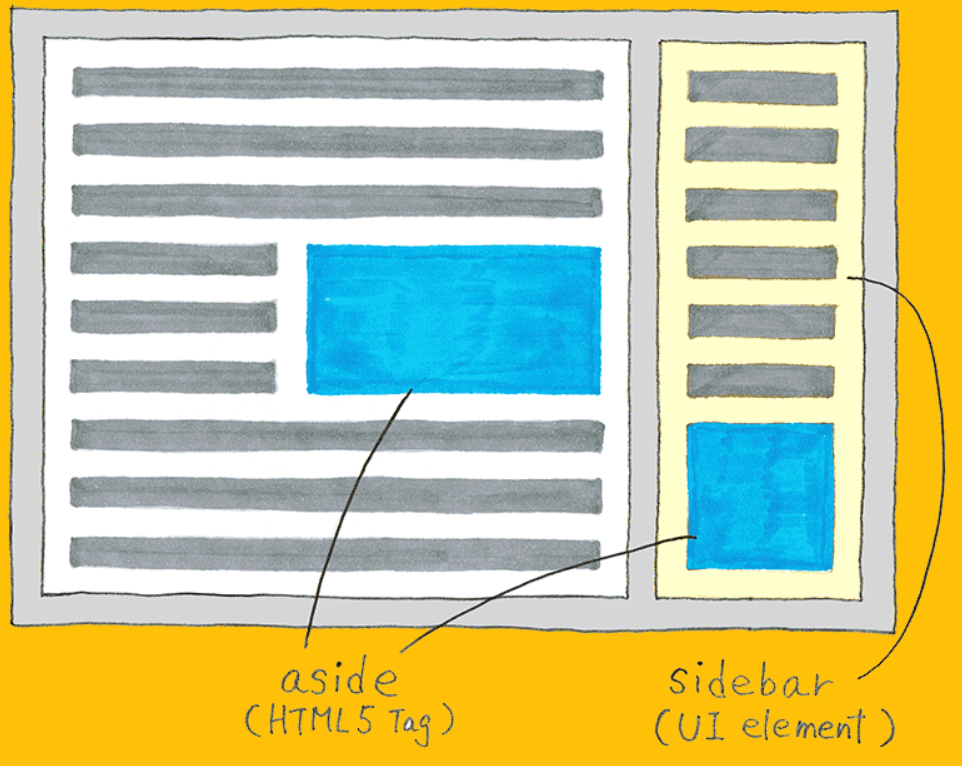 aside
(HTML5 Tag)
sidebar
(UI element)